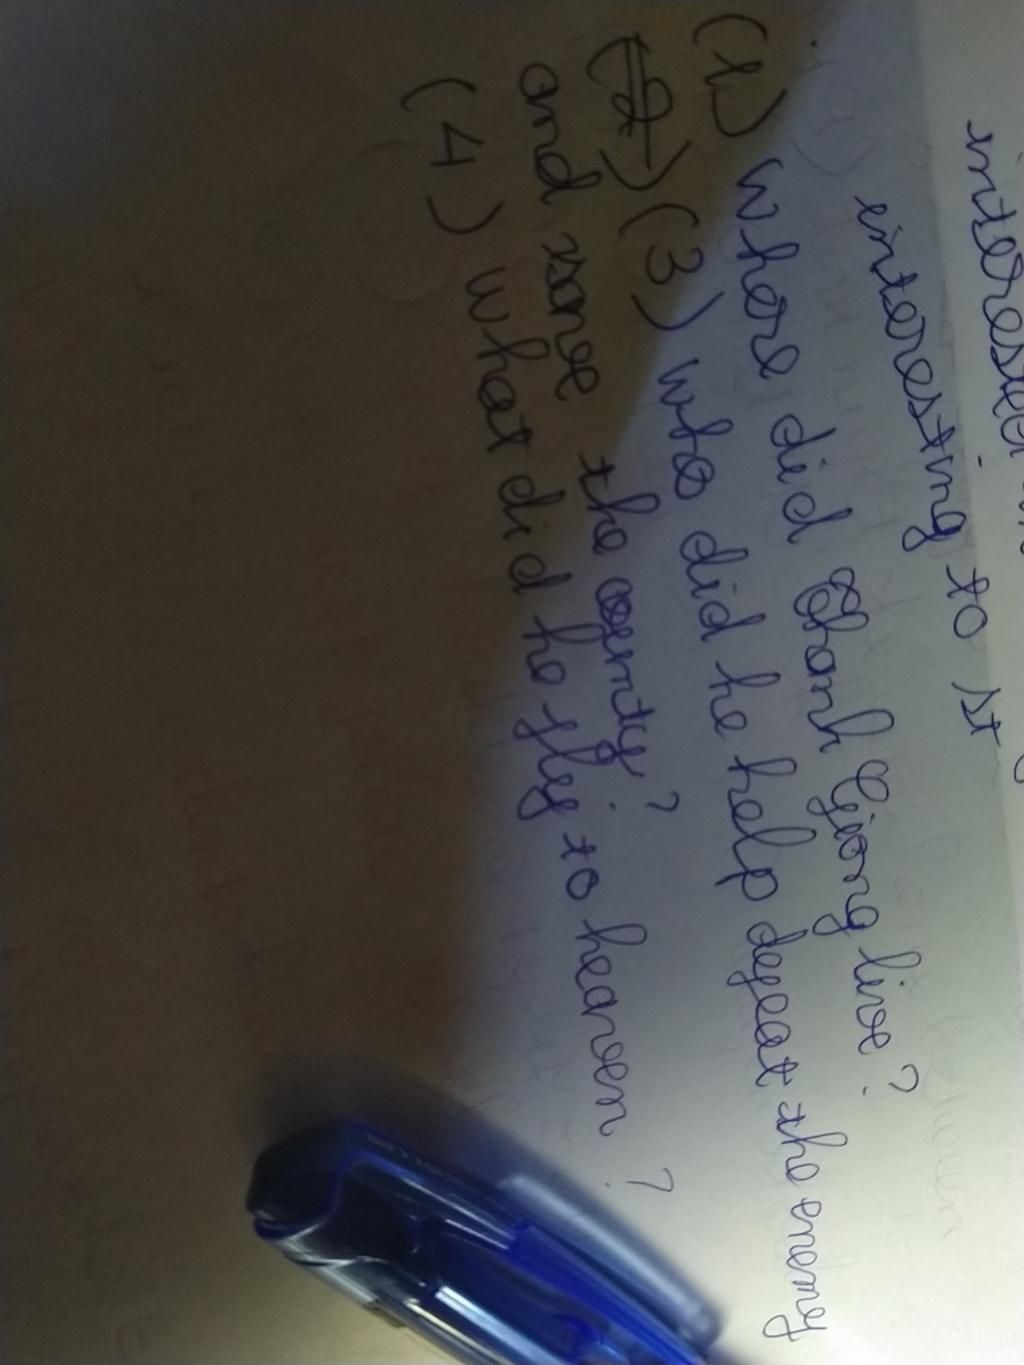 interesting to st
(1) where did Thanh Giong live?
(2) (3) who did he help defeat the enemy
and save the ?
(4) what did he fly to heaven ?